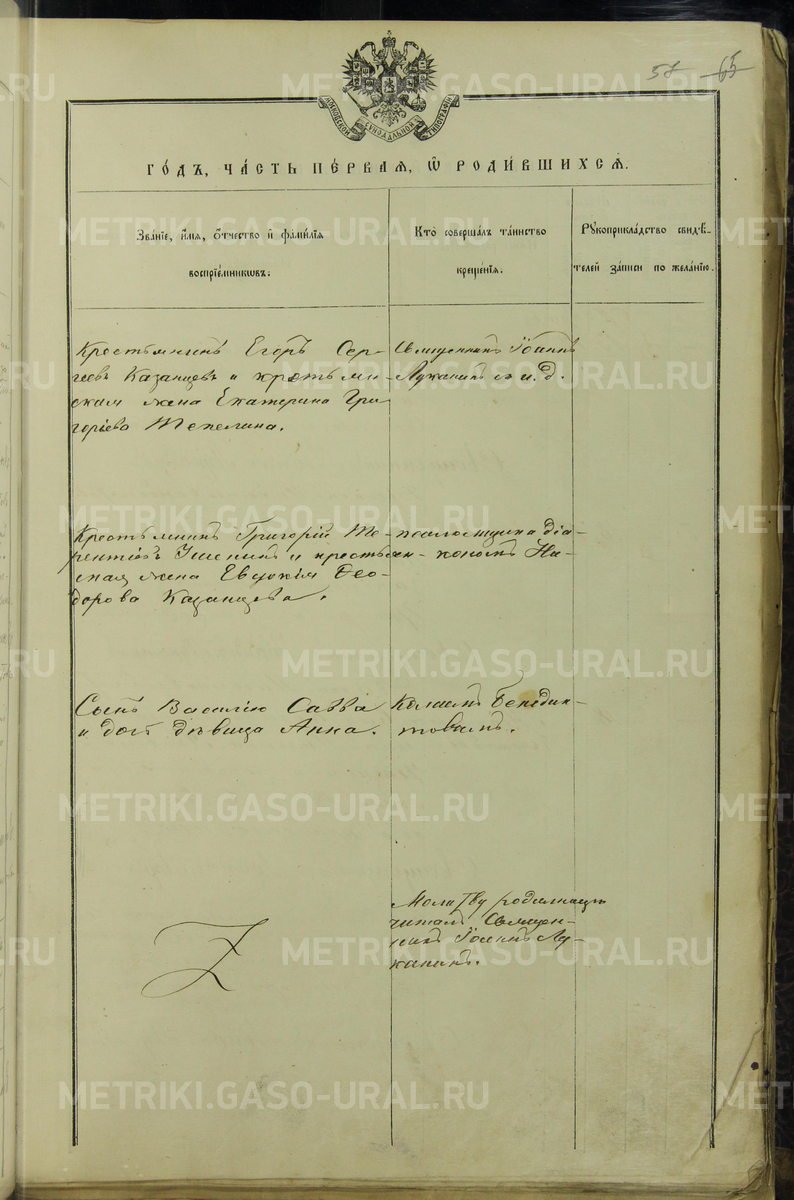 57 65
МОСКОВСКОЙ СѴНОДАЛЬНОЙ ТИПОГРАФІИ
ГО́ДЪ, ЧА́СТЬ ПЕ́РВАѦ, Ѡ҆ РОДИ́ВШИХСѦ.
Зва́нїе, и҆́мѧ, ѻ҆́тчество и҆ фами́лїѧ
воспрїе́мникѡвъ.
Кто̀ соверша́лъ та́инство
креще́нїѧ.
Рꙋкоприкла́дство свидѣ́-
телей за́писи по жела́нїю.
Крестьянинъ Егоръ Сер-
геевъ Казанцевъ и крестьян-
ская жена Екатерина Гри
горіева
Священникъ Іоаннъ
Луканинъ
Крестьянинъ Григорій Те-
рентіевъ и крестьян-
ская жена Евдокія Ѳео-
дорова Казанцева.
псаломщика діа-
кономъ
Сынъ Василію Савва
и дочь дѣвица Анна.
товымъ.
Молитву родильницѣ
читалъ Священ-
никъ Іоаннъ Лу-
канинъ.
METRIKI.GASO-URAL.RU